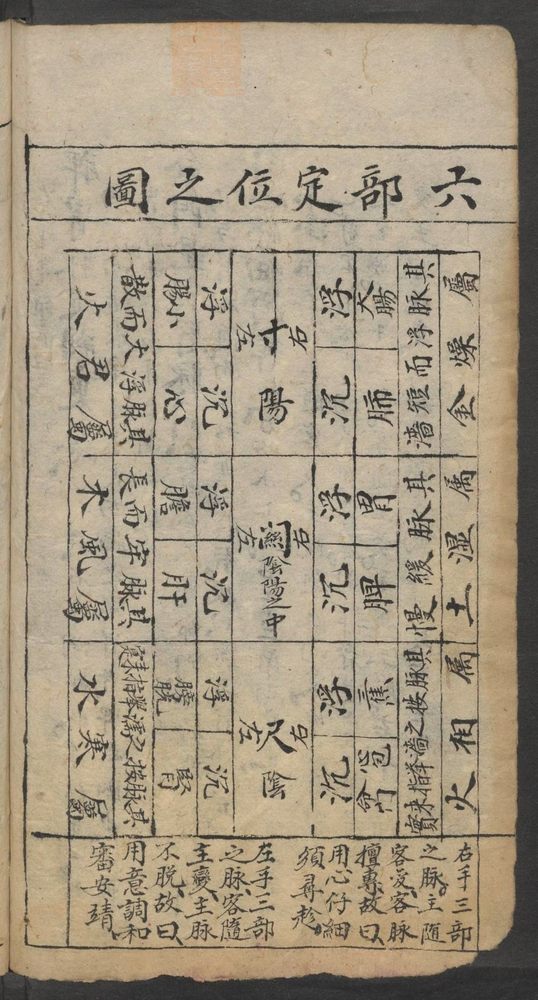 六部定位之圖
屬燥金
其脉浮而短濇
大腸
肺
浮
沉
右
寸陽
左
浮
沉
小腸
心
其脉浮大而散
屬君火
屬湿土
其脉緩慢
胃
脾
浮
沉
右
關 陰陽之中
左
浮
沉
膽
肝
其脉牢而長
屬風木
屬相火
其脉按之濡举指来實
三焦
心包
命門
浮
沉
右
尺陰
左
浮
沉
膀胱
腎
其脉按之濡舉指来實
屬寒水
右手三部
之脉主随
客变客脉
擅專故曰
用心仔細
須尋趁
左手三部
之脉客隨
主變主脉
不脱故曰
用意調和
審安靖